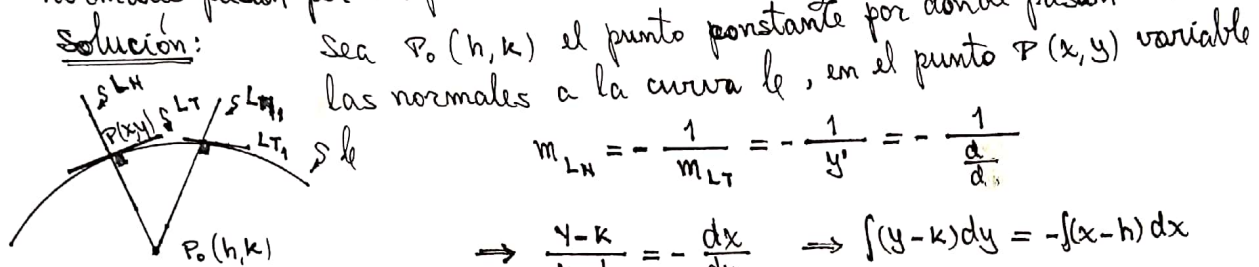 Solución:
Sea P₀ (h, k) el punto ponstante por donde pasan
las normales a la curva le, en el punto P (x, y) variable
LN
LT
LN₁
P(x,y)
LT₁
le
P₀ (h, k)
m_LN = - 1/m_LT = - 1/y' = - 1/(d/d)
⟹ (y-k)/ = - dx/ ⟹ ∫(y-k)dy = -∫(x-h) dx